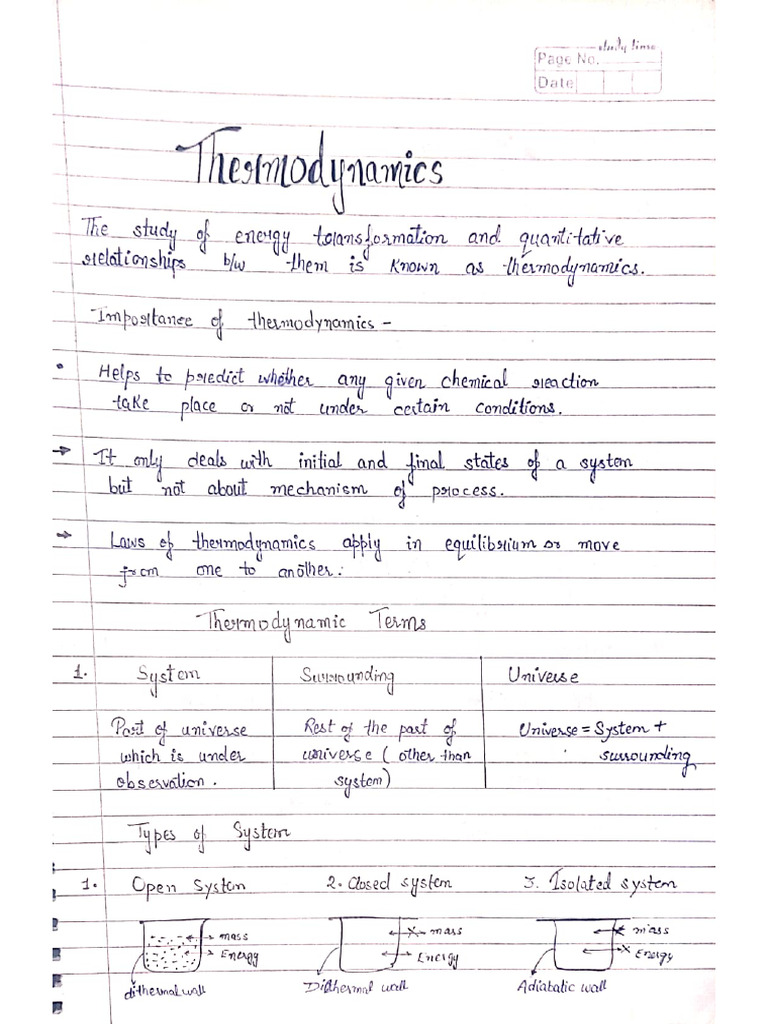 study time
Page No.
Date
Thermodynamics
The study of energy transformation and quantitative
relationships b/w them is known as thermodynamics.
Importance of thermodynamics -
• Helps to predict whether any given chemical reaction
take place or not under certain conditions.
→ It only deals with initial and final states of a system
but not about mechanism of process.
→ Laws of thermodynamics apply in equilibrium or move
from one to another.
Thermodynamic Terms
1. System Surrounding Universe
Part of universe Rest of the part of Universe = System +
which is under universe ( other than surrounding
observation. system)
Types of System
1. Open System 2. Closed system 3. Isolated system
mass mass mass
Energy Energy Energy
dithermal wall Diathermal wall Adiabatic wall